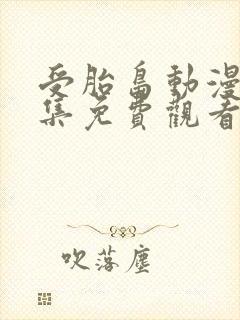 受胎島動漫
集免費觀看
吹落塵